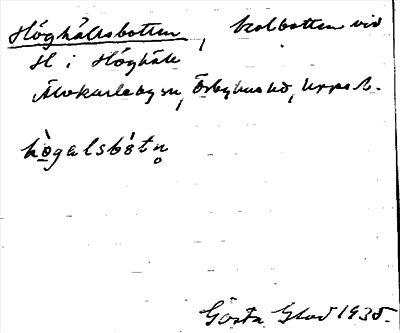 Höghältsbotten, kolbotten vid
H i Höghäll
Älvkarleby sn, Örbyhus hd, Upps l.
hògalsbót n̥
Gösta Glad 1935.